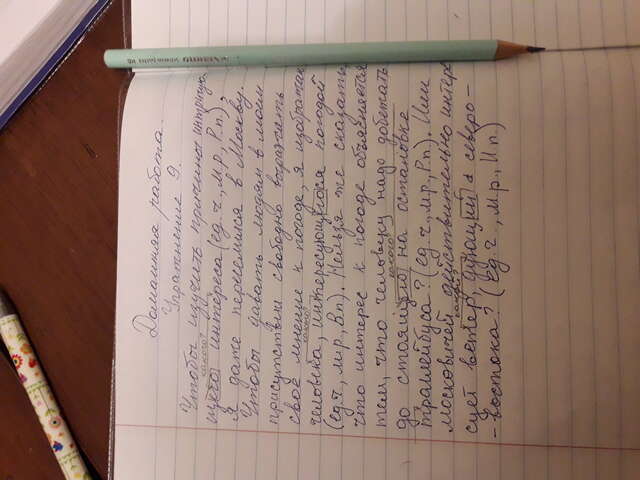 Домашняя работа.
Упражнение 9.
Чтобы изучить причины интригую-
какого?
щего интереса (ед.ч., м.р., Р.п.)
Я даже переселился в Москву.
Чтобы давать людям в моём
присутствии свободно выразить
своё мнение к погоде, я изобретал
какого?
человека, интересующегося погодой
(ед.ч., м.р., В.п.). Нельзя же сказать,
что интерес к погоде объясняется
тем, что человеку надо добежать
до стоящего на остановке
троллейбуса? (ед.ч., м.р., Р.п.). Или
москвичей действительно интере-
сует ветер, дующий с северо-
какой?
-востока? (ед.ч., м.р., И.п.)